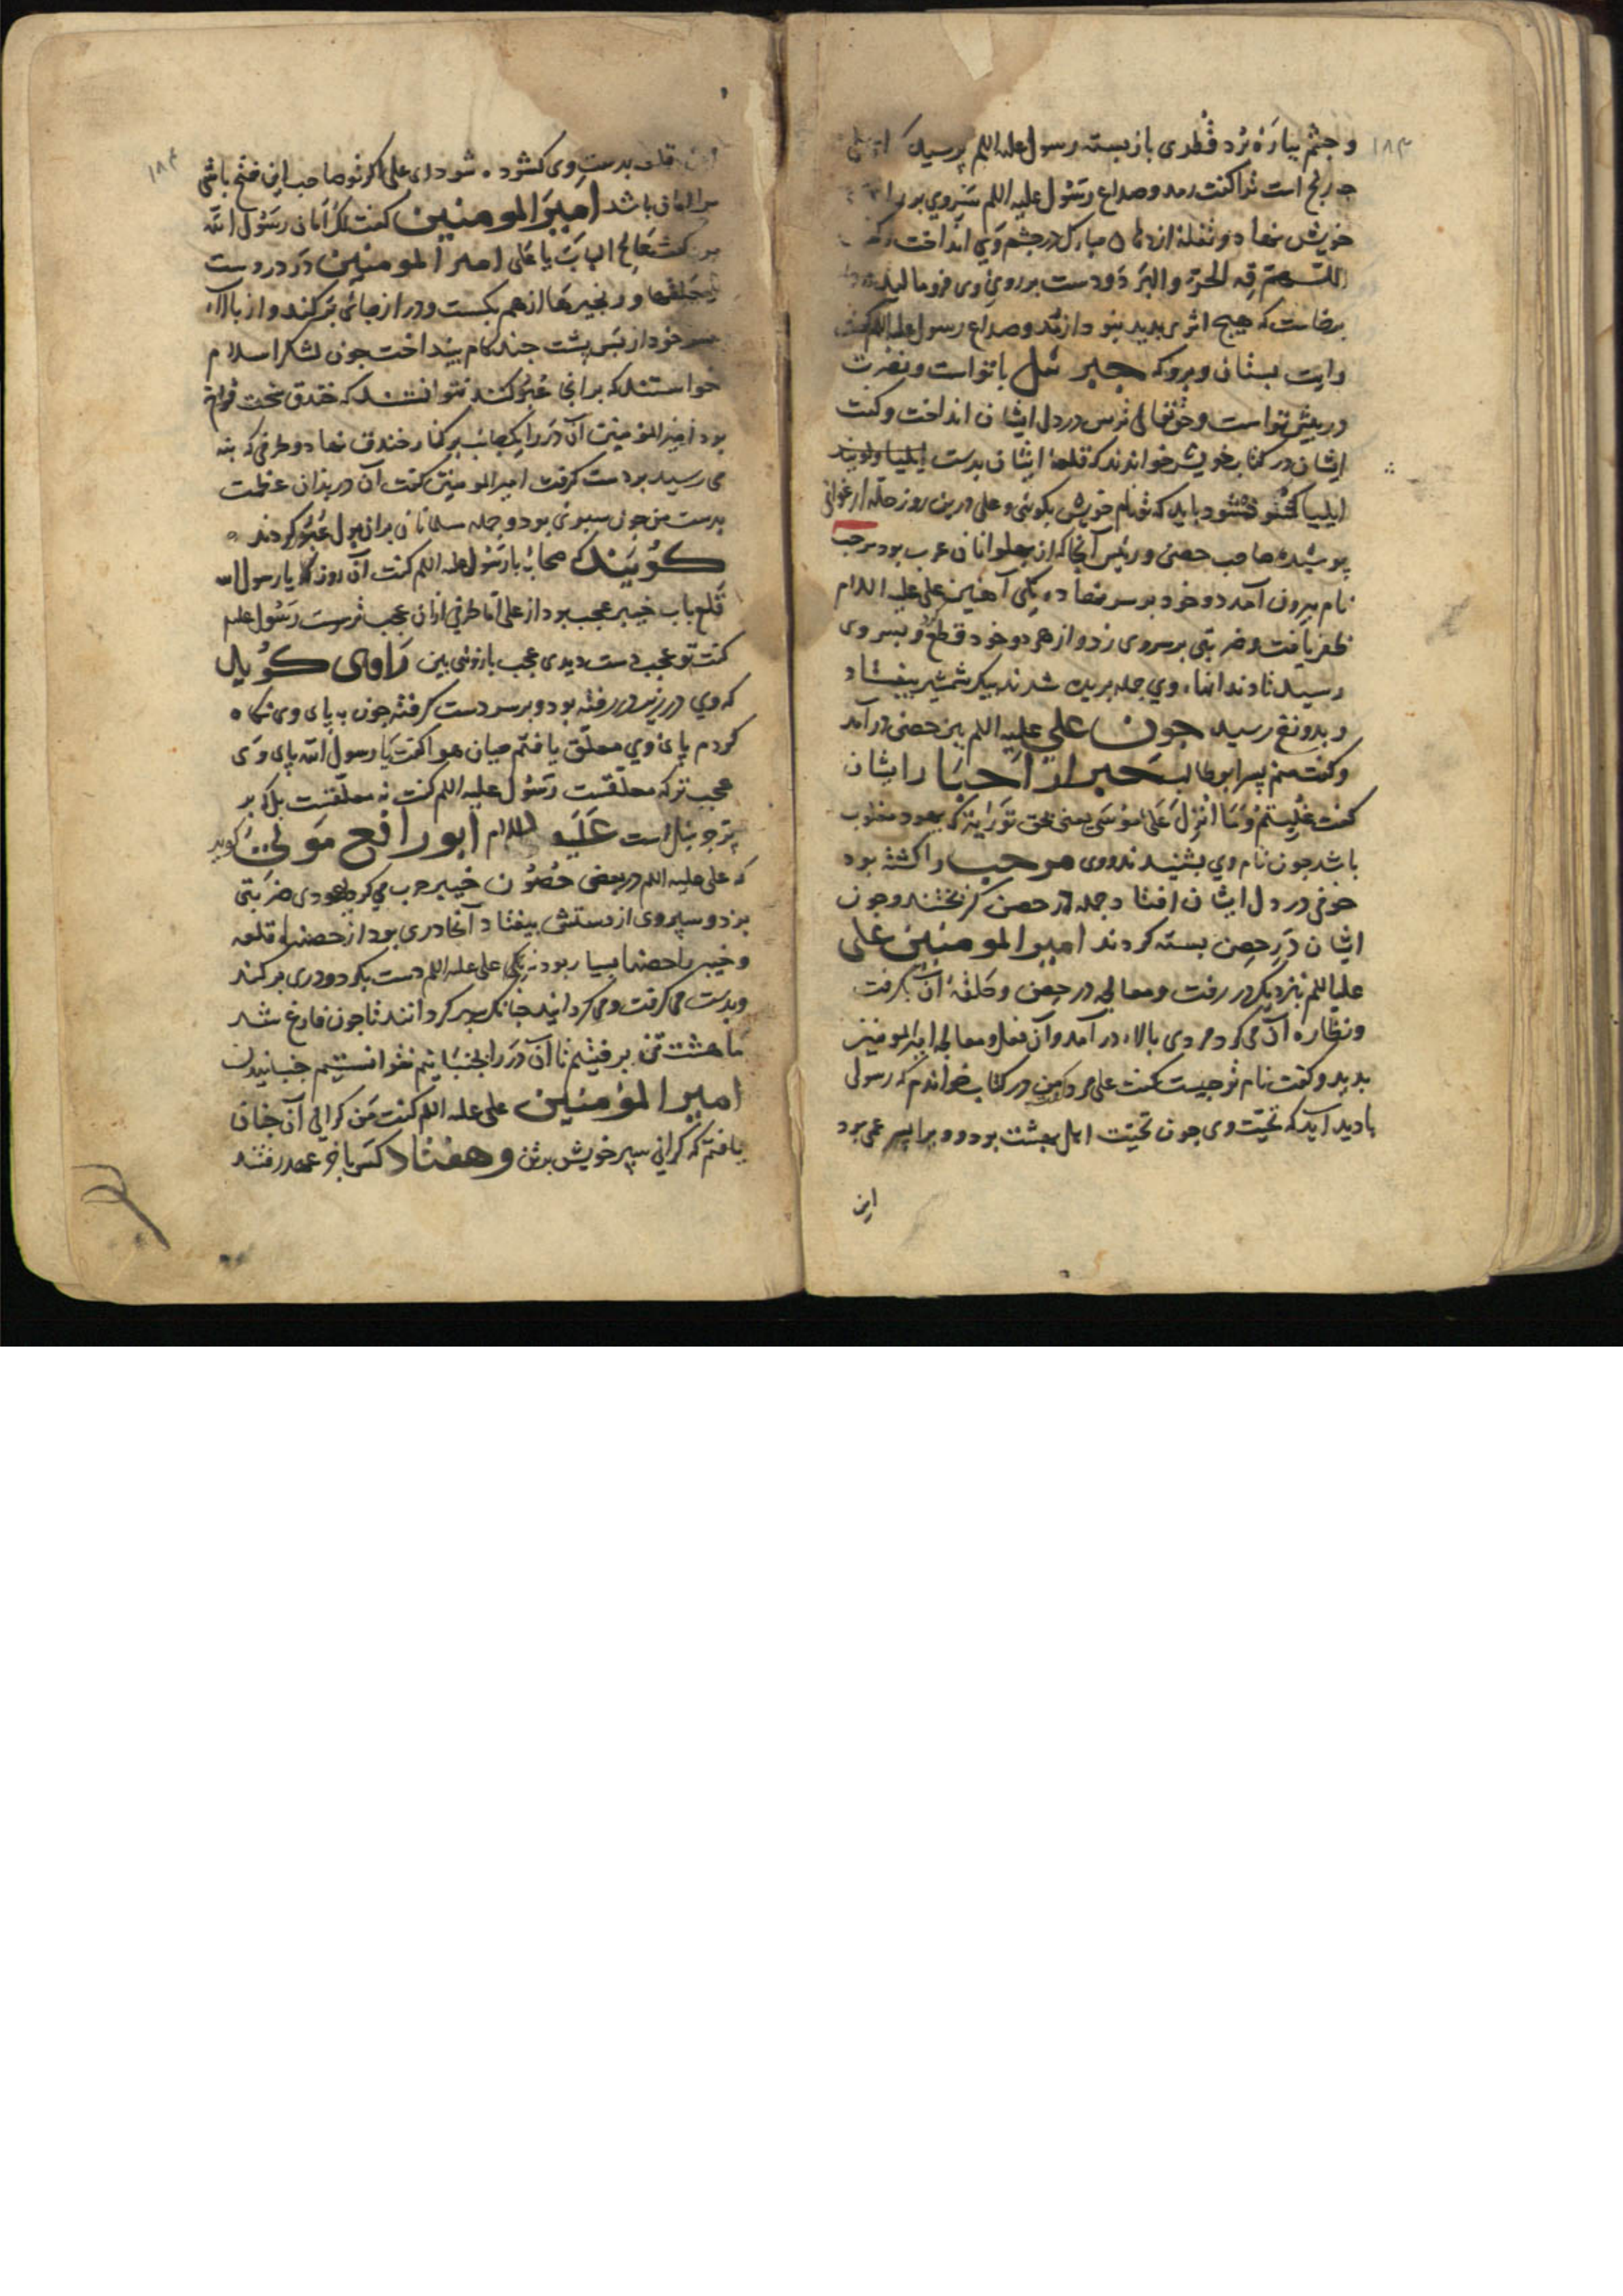 ۱۸۳
و چشم بپارهٔ بُرد قُطری بازبسته رسول علیه السلم پرسید که ای علی
چه رنج است ترا کفت رمد و صداع رسول علیه اللم سر وی برران
خویش نهاد و تفله از دهان مبارک در چشم وی انداخت و کفت
اللهم قِه الحرّ و البرد و دست بر روی وی فرو مالید
برخاست که هیچ اثر پدید نبود از رمد و صداع رسول علیه اللم کفت
رایت بستان و برو که جبرئیل با تواست و نصرت
در پیش تواست و حق تعالی ترس در دل ایشان انداخت و کفت
ایشان در کتاب خویش خواندند که قلعهٔ ایشان بدست ایلیا و کویند
ایلیا کشوده شود باید که تو نام خویش بکوئی و علی درین روز حلّه ارغوانی
پوشیده صاحب حصن و رئیس آنجا که از پهلوانان عرب بود مرحب
نام بیرون آمد دو خود بر سر نهاده یکی آهنین علی علیه السلام
ظفر یافت و ضربتی بر سر وی زد و از هر دو خود قطع کرد و بسر وی
رسید تا دندانهاء وی جمله بریده شد ند بیک شمشیر بیفتاد
و بدوزخ رسید چون علی علیه اللم بدین حصن درآمد
و کفت منم پسر ابوطالب حبر از احبار ایشان
کفت غُلِبتم وَمَا اُنزِلَ عَلَی مُوسَی یعنی بحق توراة که یهود مغلوب
باشد چون نام وی بشنیدند و وی مرحب را کشته بود
خوفی در دل ایشان افتاد جمله در حصن کریختند و چون
ایشان دَرِ حصن بسته کردند امیر المومنین علی
علیه اللم بنزدیک در رفت و معالجه در حصن و حلقهٔ آن بکرفت
و نظاره آن می کرد مردی بالاء در آمد و آن فعل و معالجه امیر المومنین
بدید و کفت نام تو چیست کفت علی مرد کفت من در کتاب خواندم که رسولی
پادید آید که تحیّت وی چون تحیّت اهل بهشت بود و ویرا پسر عمی بود
این
۱۸۴
این قلعه بدست وی کشوده شود ای علی اکر تو صاحب این فتح باشی
مرا امان باشد امیر المومنین کفت لک اَمان رسول الله
کفت عَالِجِ الباب یا علی امیر المومنین در در دست
حلقها و زنجیرها از هم بکست و در از جای بر کند و از بالاء
سر خود از پس پشت چند کام بینداخت چون لشکر اسلام
خواستند که بر آنجا عبور کنند نتوانستند که خندق سخت فراخ
بود امیر المومنین آن در را یک جانب بر کنار خندق نهاد و طرفی که نه
می رسید بر دست کرفت امیر المومنین کفت آن در بدان عظمت
بدست من چون سبوئی بود و جمله مسلمانان بر ان پول عُبُور کردند
کویند که صحابه با رسول علیه اللم کفت آن روز که یا رسول الله
قلع باب خیبر عجب بود از علی اما طرفی از ان عجب ترست رسول علیه
کفت تو عجب دست دیدی عجب بازوش بین راوی کوید
که وی در زیر در رفته بود و بر سر دست کرفته چون به پای وی نکاه
کردم پای وی معلّق یافتم میان هوا کفت یا رسول الله پای وی
عجب تر که معلّقست رسول علیه اللم کفت نه معلّقست بل که بر
پرّ جبرئیل است علیه السلام ابو رافع مولی کوید
که علی علیه اللم در بعضی حُصُون خیبر حرب می کرد یهودی ضربتی
بزد و سپر وی از دستش بیفتاد آنجا دری بود از حصنهاء قلعه
و خیبر را حصنها بسیار بود نه یکی علی علیه اللم دست بکرد و دری بر کند
و بدست می کرفت و می کردانید چنانک سپر کردانند تا چون فارغ شد
ما هشت تن برفتیم تا آن در را بجنبانیم نتوانستیم جنبانیدن
امیر المؤمنین علی علیه اللم کفت من کرانی آن چنان
یافتم که کرانی سپر خویش بر تن و هفتاد کس با جهد رفتند